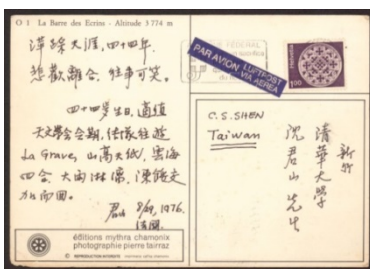 O 1 La Barre des Ecrins - Altitude 3774 m
萍踪天涯,四十四年.
悲歡離合,往事可笑.
四十四岁生日,適值
天文學会会期,结隊往遊
La Grave,山高大紙,雲海
四合,大雨淋漓,凍餒交
加而回.
君山 8/29, 1976.
法國.
éditions mythra chamonix
photographie pierre tairraz
© REPRODUCTION INTERDITE
PAR AVION LUFTPOST
VIA AEREA
HELVETIA
1.00
C.S. SHEN
Taiwan
新竹
清華大學
沈君山先生